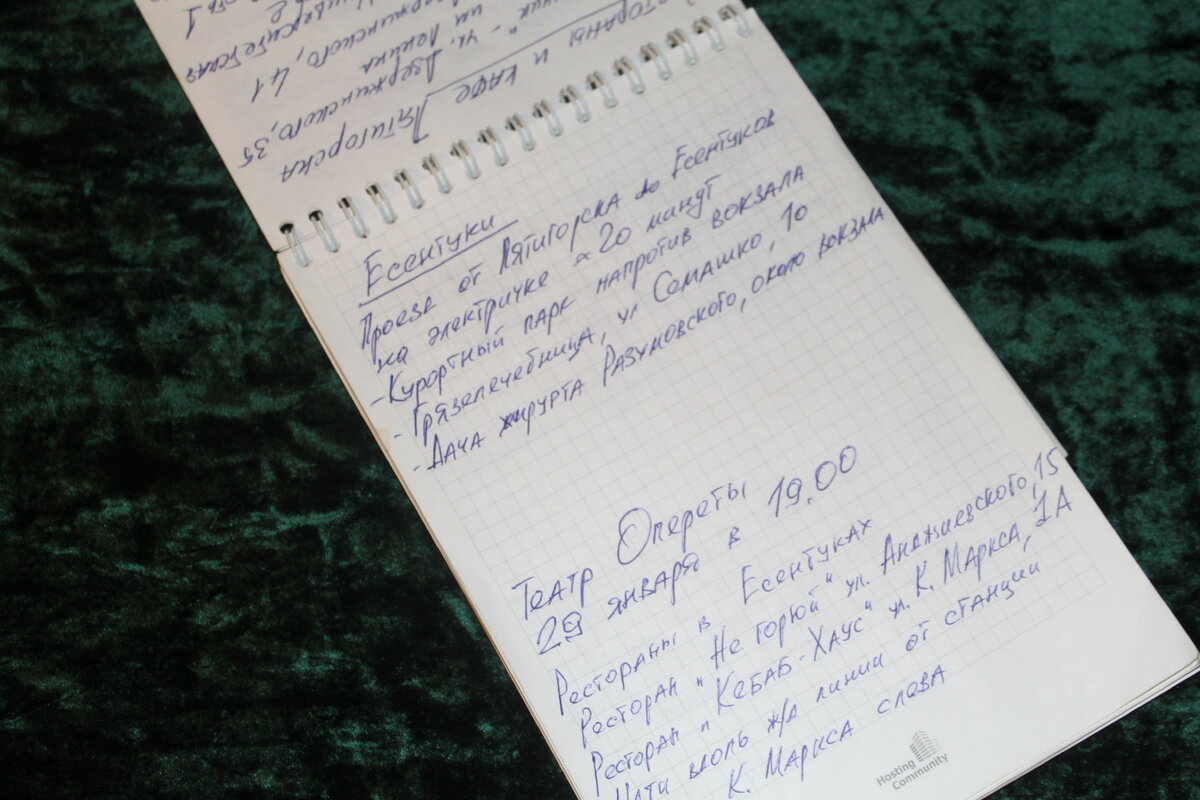 Рестораны
и кафе Пятигорска
Дзержинского, 35
ул. Ленина
Дзержинского, 41
Университетская
Ессентуки
Проезд от Пятигорска до Есентуков
на электричке ≈ 20 минут
- Курортный парк напротив вокзала
- Грязелечебница, ул Семашко, 10
- Дача хирурга Разумовского, около вокзала
Театр Опереты
29 января в 19.00
Рестораны в Есентуках
Ресторан "Не горюй" ул. Анджиевского, 15
Ресторан "Кебаб-Хаус" ул. К. Маркса, 1А
Идти вдоль ж/д линии от станции
К. Маркса слева
Hosting
Community